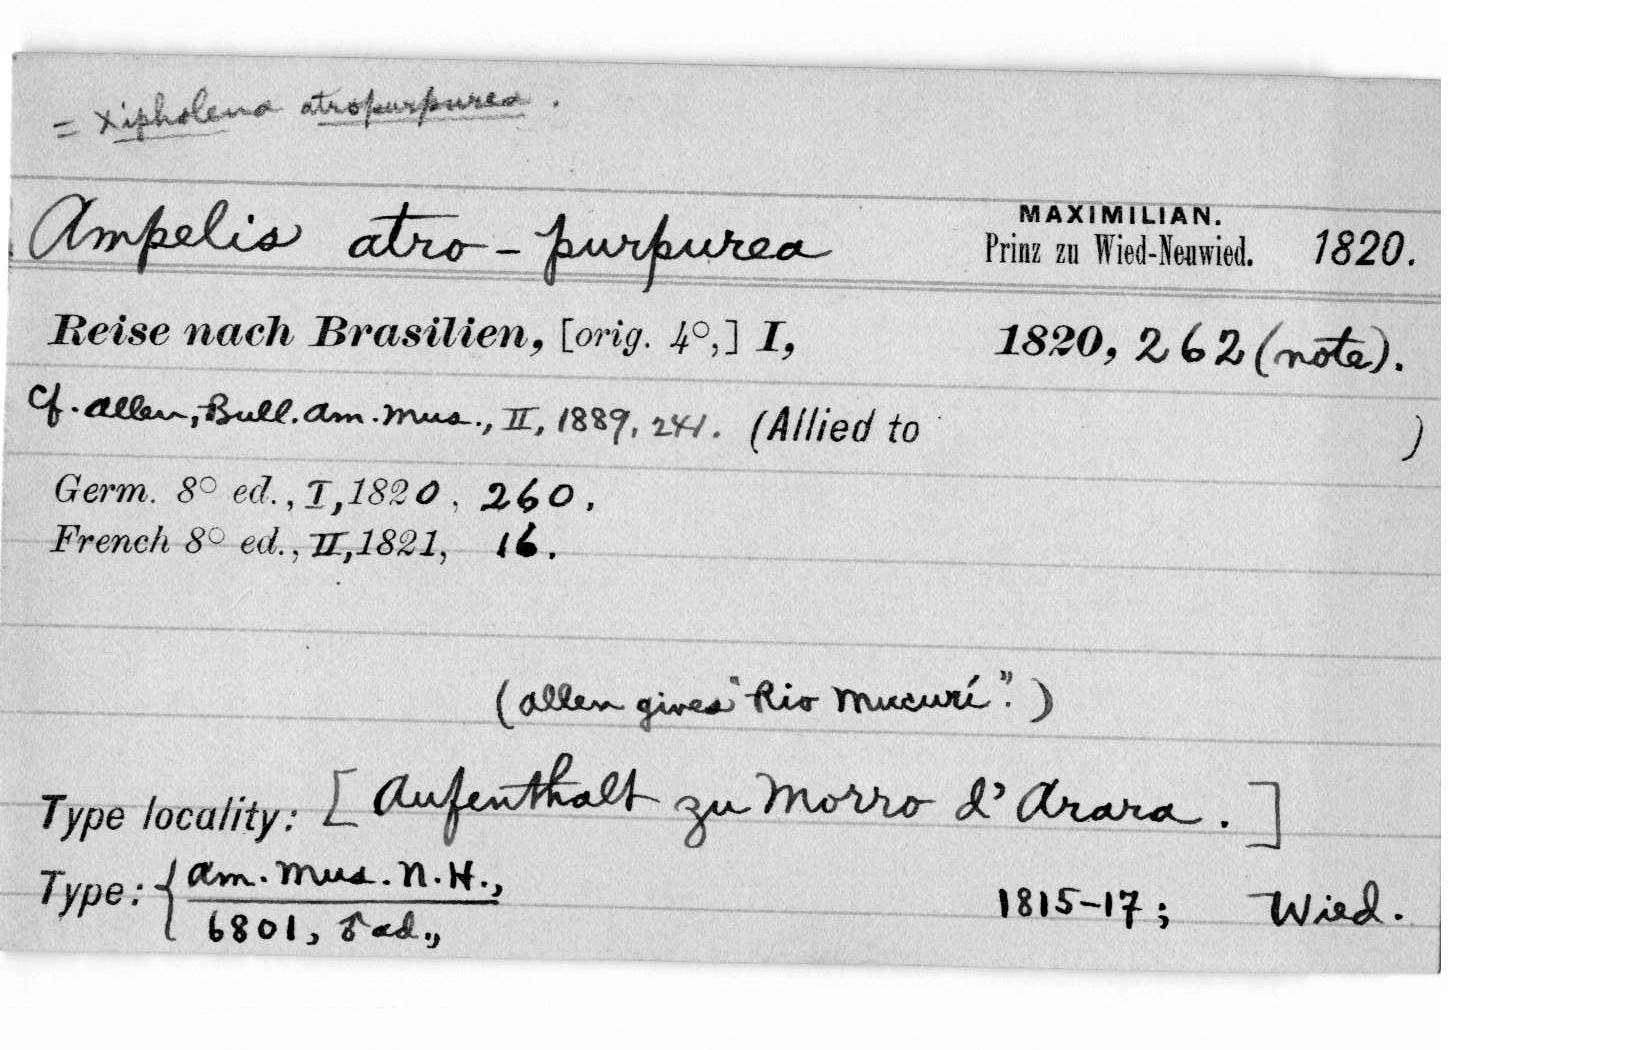 = Xipholena atropurpurea.
Ampelis atro-purpurea MAXIMILIAN. Prinz zu Wied-Neuwied. 1820.
Reise nach Brasilien, [orig. 4°,] I, 1820, 262 (note).
Cf. Allen, Bull. Am. Mus., II, 1889, 241. (Allied to )
Germ. 8° ed., I, 1820, 260.
French 8° ed., II, 1821, 16.
(Allen gives "Rio Mucurí".)
Type locality: [Aufenthalt zu Morro d'Arara.]
Type: { Am. Mus. N. H.,
6801, ♂ ad., 1815-17; Wied.